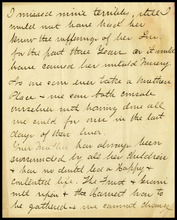 I missed mine terribly, still
would not have had her
know the sufferings of her Son
for the past three years as it would
have caused her untold misery
No one can ever take a mother's
Place & we can both console
ourselves not having done all
we could for one in the last
days of their lives.
Your Mother has always been
surrounded by all her children
& has no doubt led a Happy &
contented life. The Fruit & Grain
must ripen & the harvest has to
be gathered & we cannot change